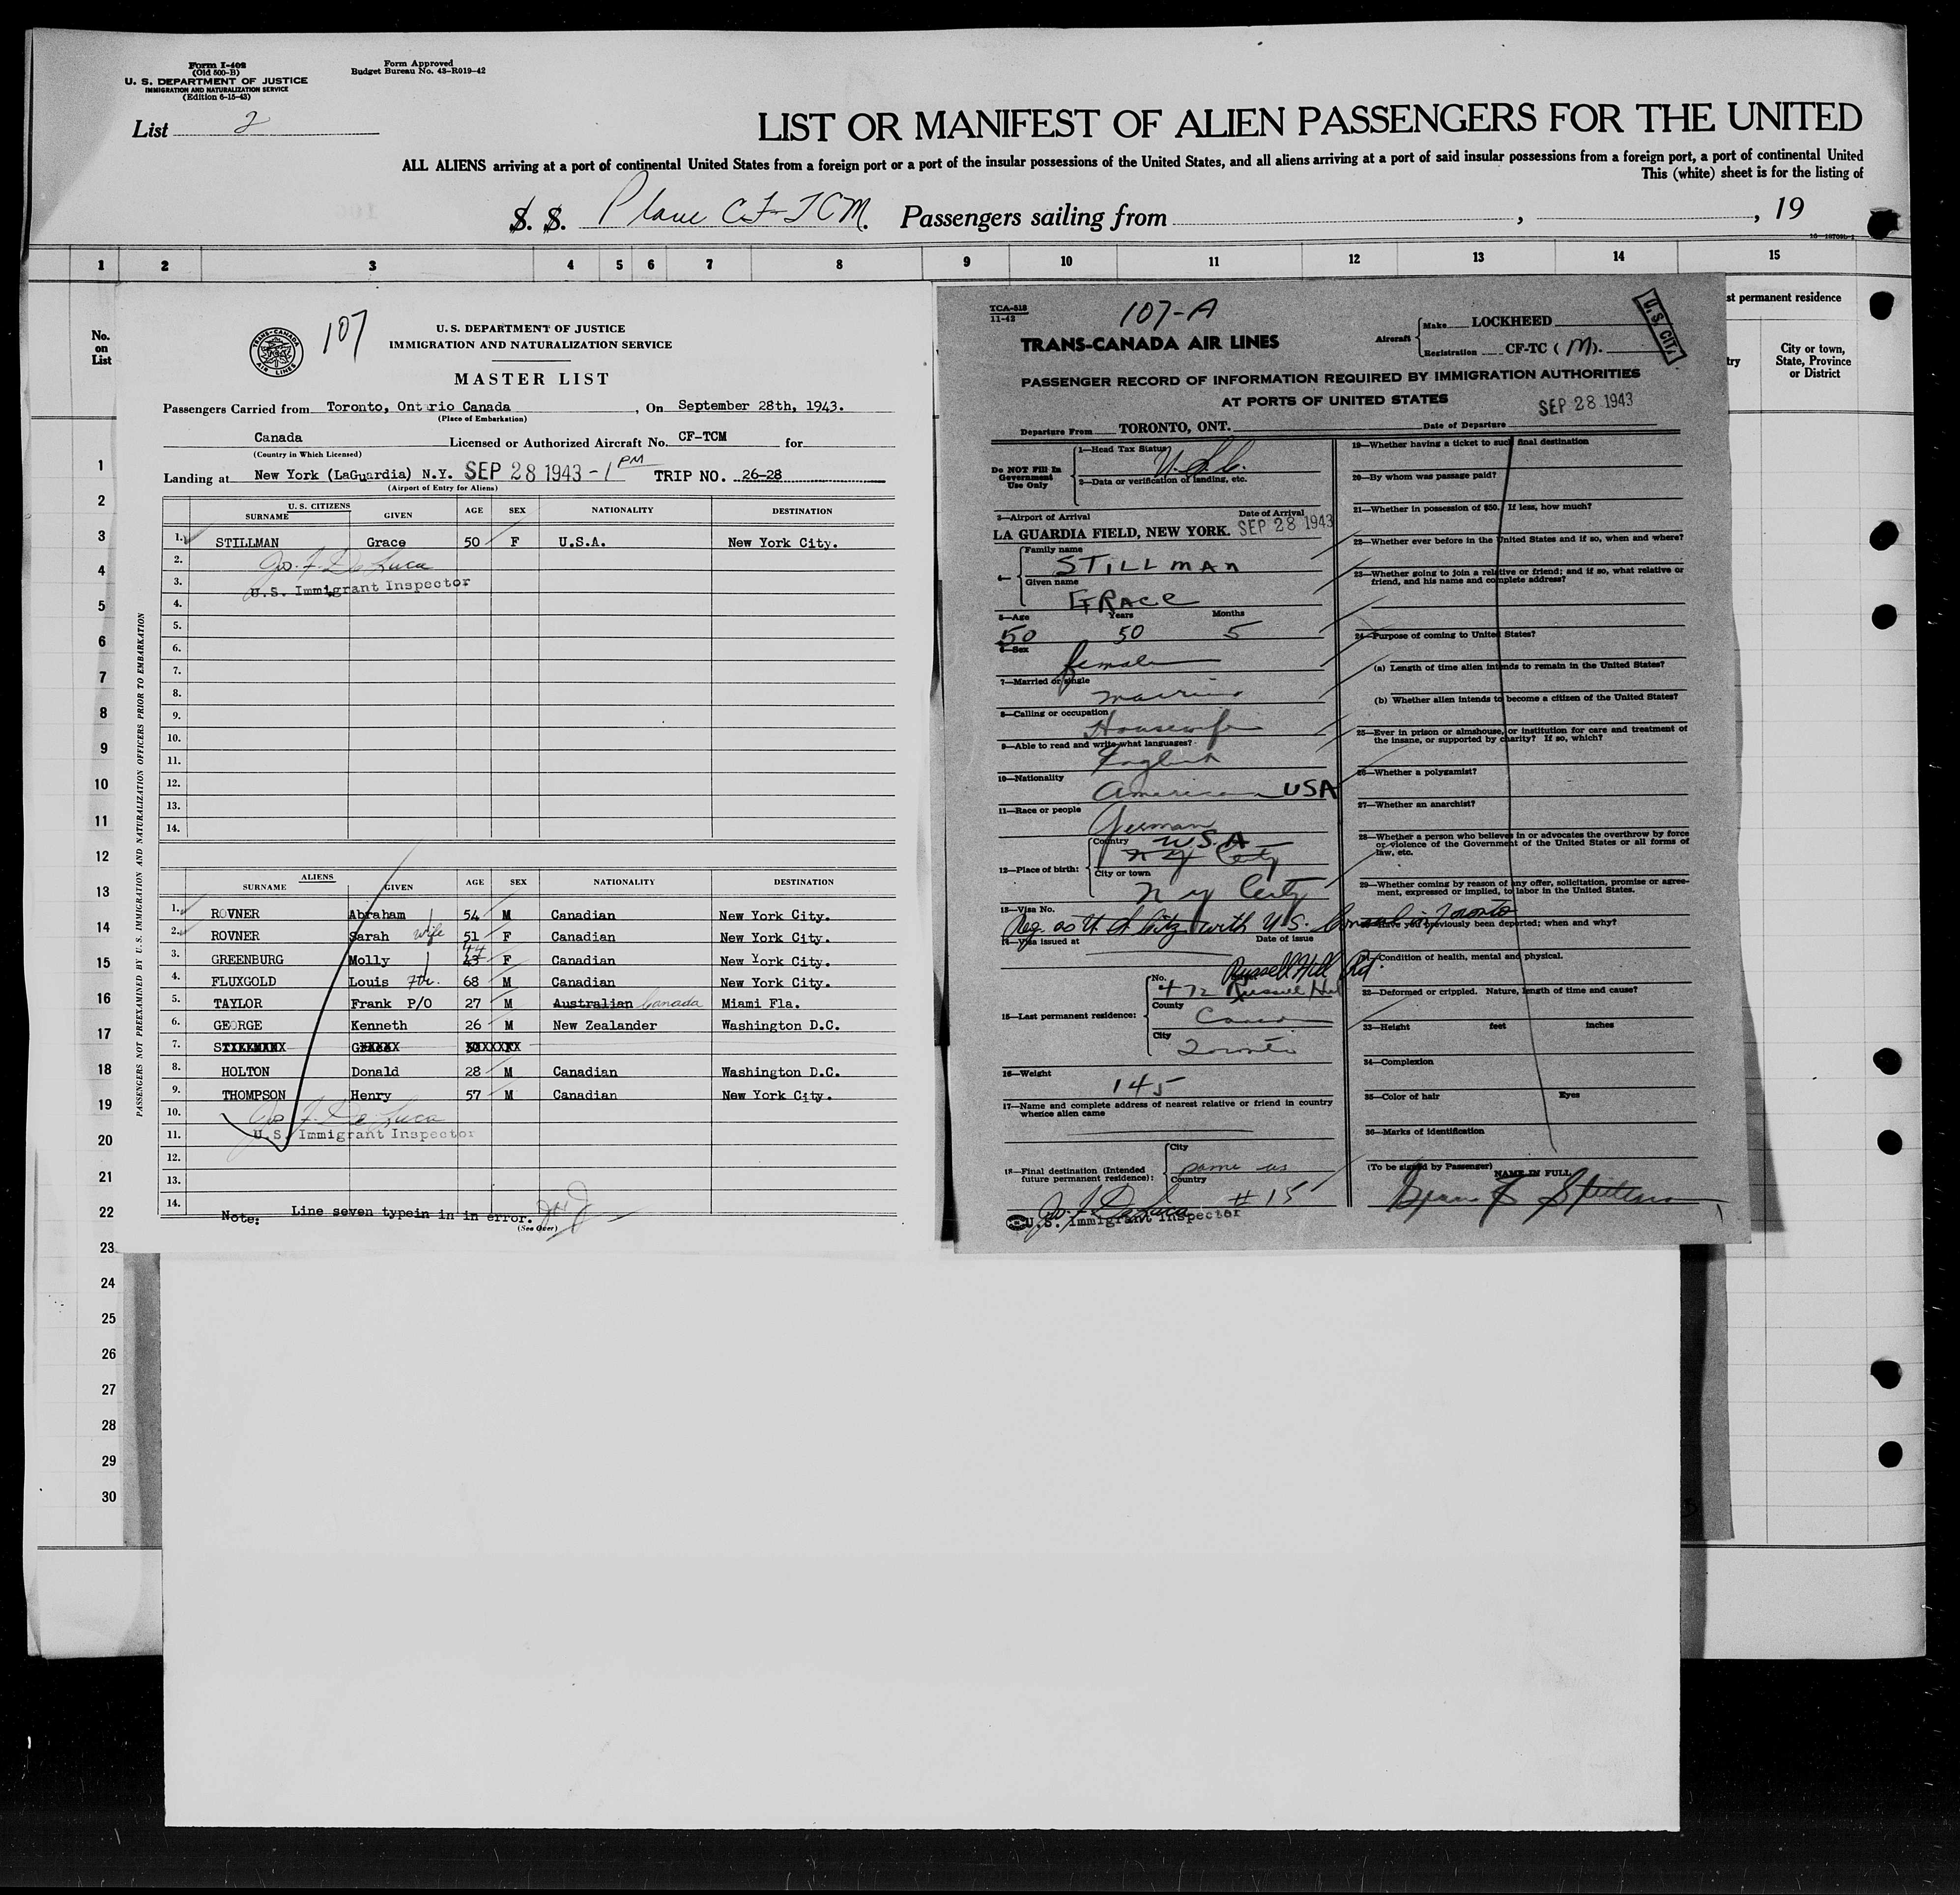 Form I-402
(Old 500-B)
U. S. DEPARTMENT OF JUSTICE
IMMIGRATION AND NATURALIZATION SERVICE
(Edition 6-15-43)
Form Approved
Budget Bureau No. 43-R019-42
List 2
LIST OR MANIFEST OF ALIEN PASSENGERS FOR THE UNITED
ALL ALIENS arriving at a port of continental United States from a foreign port or a port of the insular possessions of the United States, and all aliens arriving at a port of said insular possessions from a foreign port, a port of continental United
This (white) sheet is for the listing of
S. S. Plane CF-TCM. Passengers sailing from , , 19
1 2 3 4 5 6 7 8 9 10 11 12 13 14 15
No.
on
List
st permanent residence
City or town,
State, Province
or District
1
2
3
4
5
6
7
8
9
10
11
12
13
14
15
16
17
18
19
20
21
22
23
24
25
26
27
28
29
30
TRANS-CANADA AIR LINES
107
U. S. DEPARTMENT OF JUSTICE
IMMIGRATION AND NATURALIZATION SERVICE
MASTER LIST
Passengers Carried from Toronto, Ontario Canada , On September 28th, 1943.
(Place of Embarkation)
Canada Licensed or Authorized Aircraft No. CF-TCM for
(Country in Which Licensed)
Landing at New York (LaGuardia) N.Y. SEP 28 1943 - 1 PM TRIP NO. 26-28
(Airport of Entry for Aliens)
PASSENGERS NOT PREEXAMINED BY U. S. IMMIGRATION AND NATURALIZATION OFFICERS PRIOR TO EMBARKATION
U. S. CITIZENS
SURNAME GIVEN AGE SEX NATIONALITY DESTINATION
1. STILLMAN Grace 50 F U.S.A. New York City.
2. Jos. F. De Luca
3. U.S. Immigrant Inspector
4.
5.
6.
7.
8.
9.
10.
11.
12.
13.
14.
ALIENS
SURNAME GIVEN AGE SEX NATIONALITY DESTINATION
1. ROVNER Abraham 54 M Canadian New York City.
2. ROVNER Sarah wife 51 F Canadian New York City.
3. GREENBURG Molly 43 44 F Canadian New York City.
4. FLUXGOLD Louis 68 M Canadian New York City.
5. TAYLOR Frank P/O 27 M Australian Canada Miami Fla.
6. GEORGE Kenneth 26 M New Zealander Washington D.C.
7.
8. HOLTON Donald 28 M Canadian Washington D.C.
9. THOMPSON Henry 57 M Canadian New York City.
10. Jos. F. De Luca
11. U.S. Immigrant Inspector
12.
13.
14.
Note: Line seven typein in in error.
(See Over)
TCA-518
11-42
107-A
TRANS-CANADA AIR LINES
Aircraft
Make LOCKHEED
Registration CF-TC (M).
U. S. CIT.
PASSENGER RECORD OF INFORMATION REQUIRED BY IMMIGRATION AUTHORITIES
AT PORTS OF UNITED STATES
SEP 28 1943
Departure From TORONTO, ONT. Date of Departure
Do NOT Fill In
Government
Use Only
1—Head Tax Status
U.S.C.
2—Data or verification of landing, etc.
3—Airport of Arrival Date of Arrival
LA GUARDIA FIELD, NEW YORK. SEP 28 1943
4—
Family name
STILLMAN
Given name
GRACE
5—Age Years Months
50 50 5
6—Sex
female
7—Married or single
married
8—Calling or occupation
Housewife
9—Able to read and write what languages?
English
10—Nationality
American USA
11—Race or people
German
12—Place of birth:
Country U.S.A
N Y City
City or town
N Y City
13—Visa No.
Reg. as U. S. Citz. with U.S. Consul in Toronto
14—Visa issued at Date of issue
Russell Hill Rd.
15—Last permanent residence:
No.
472 Russell Hill
County
Canada
City
Toronto
16—Weight
145
17—Name and complete address of nearest relative or friend in country
whence alien came
18—Final destination (Intended
future permanent residence):
City
same as
Country
# 15
Jos. F. De Luca
U.S. Immigrant Inspector
19—Whether having a ticket to such final destination
20—By whom was passage paid?
21—Whether in possession of $50. If less, how much?
22—Whether ever before in the United States and if so, when and where?
23—Whether going to join a relative or friend; and if so, what relative or
friend, and his name and complete address?
24—Purpose of coming to United States?
(a) Length of time alien intends to remain in the United States?
(b) Whether alien intends to become a citizen of the United States?
25—Ever in prison or almshouse, or institution for care and treatment of
the insane, or supported by charity? If so, which?
26—Whether a polygamist?
27—Whether an anarchist?
28—Whether a person who believes in or advocates the overthrow by force
or violence of the Government of the United States or all forms of
law, etc.
29—Whether coming by reason of any offer, solicitation, promise or agree-
ment, expressed or implied, to labor in the United States.
30—Have you previously been deported; when and why?
31—Condition of health, mental and physical.
32—Deformed or crippled. Nature, length of time and cause?
33—Height feet inches
34—Complexion
35—Color of hair Eyes
36—Marks of identification
(To be signed by Passenger) NAME IN FULL